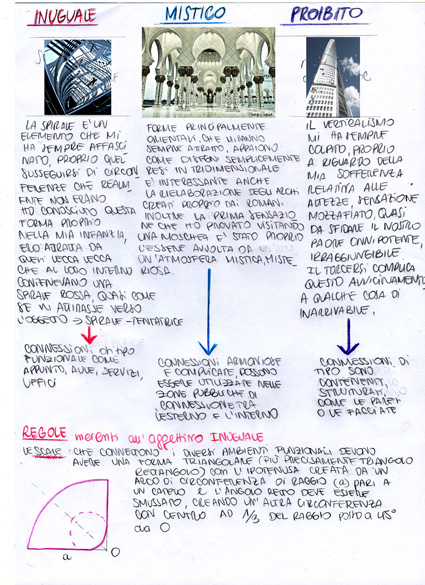 INUGUALE
MISTICO
PROIBITO
LA SPIRALE E' UN
ELEMENTO CHE MI
HA SEMPRE AFFASCI
NATO, PROPRIO QUEL
SUSSEGUIRSI DI CIRCON
FERENZE CHE REAL
ENTE NON ERANO
HO CONOSCIUTO QUESTA
FORMA PROPRIO
NELLA MIA INFANZIA,
ERO ATTRATA DA
QUEI LECCA LECCA
CHE AL LORO INTERNO
CONTENEVANO UNA
SPIRALE ROSSA, QUASI COME
SE MI ATTIRASSE VERSO
L'OGGETTO → SPIRALE-TENTATRICE
FORME PRINCIPALMENTE
ORIENTALI, CHE MI HANNO
SEMPRE ATTRATO, APPAIONO
COME DISEGNI SEMPLICEMENTE
RESI IN TRIDIMENSIONALE
E' INTERESSANTE ANCHE
LA RIELABORAZIONE DEGLI ARCHI
CREATI PROPRIO DAI ROMANI.
INOLTRE LA PRIMA SENSAZIO
NE CHE HO PROVATO VISITANDO
UNA MOSCHEA E' STATO PROPRIO
L'ESSERE AVVOLTA DA
UN'ATMOSFERA MISTICA, MISTE
RIOSA.
IL VERTICALISMO
MI HA SEMPRE
COLPITO, PROPRIO
A RIGUARDO DELLA
MIA SOFFERENZA
RELATIVA ALLE
ALTEZZE, SENSAZIONE
MOZZAFIATO, QUASI
DA SFIDARE IL NOSTRO
PADRE ONNIPOTENTE,
IRRAGGIUNGIBILE
IL TORCERSI, COMPLICA
QUESTO AVVICINAMENTO
A QUALCHE COSA DI
INARRIVABILE.
CONNESSIONI di tipo
FUNZIONALE COME
APPUNTO, AULE, SERVIZI,
UFFICI
CONNESSIONI ARMONIOSE
E COMPLICATE, POSSONO
ESSERE UTILIZZATE NELLE
ZONE PUBBLICHE DI
CONNESSIONE TRA
L'ESTERNO E L'INTERNO
CONNESSIONI, DI
TIPO SONO
CONTENENTI,
STRUTTURATI,
COME LE PARETI
O LE FACCIATE
REGOLE inerenti all'aggettivo INUGUALE
LE SCALE CHE CONNETTONO I DIVERSI AMBIENTI FUNZIONALI DEVONO
AVERE UNA FORMA TRIANGOLARE (PIÙ PRECISAMENTE TRIANGOLO
RETTANGOLO) CON L'IPOTENUSA CREATA DA UN
ARCO DI CIRCONFERENZA DI RAGGIO (a) PARI A
UN CATETO E L'ANGOLO RETTO DEVE ESSERE
SMUSSATO, CREANDO UN'ALTRA CIRCONFERENZA
CON CENTRO AD 1/3 DEL RAGGIO POSTO A 45°
da O
a
O